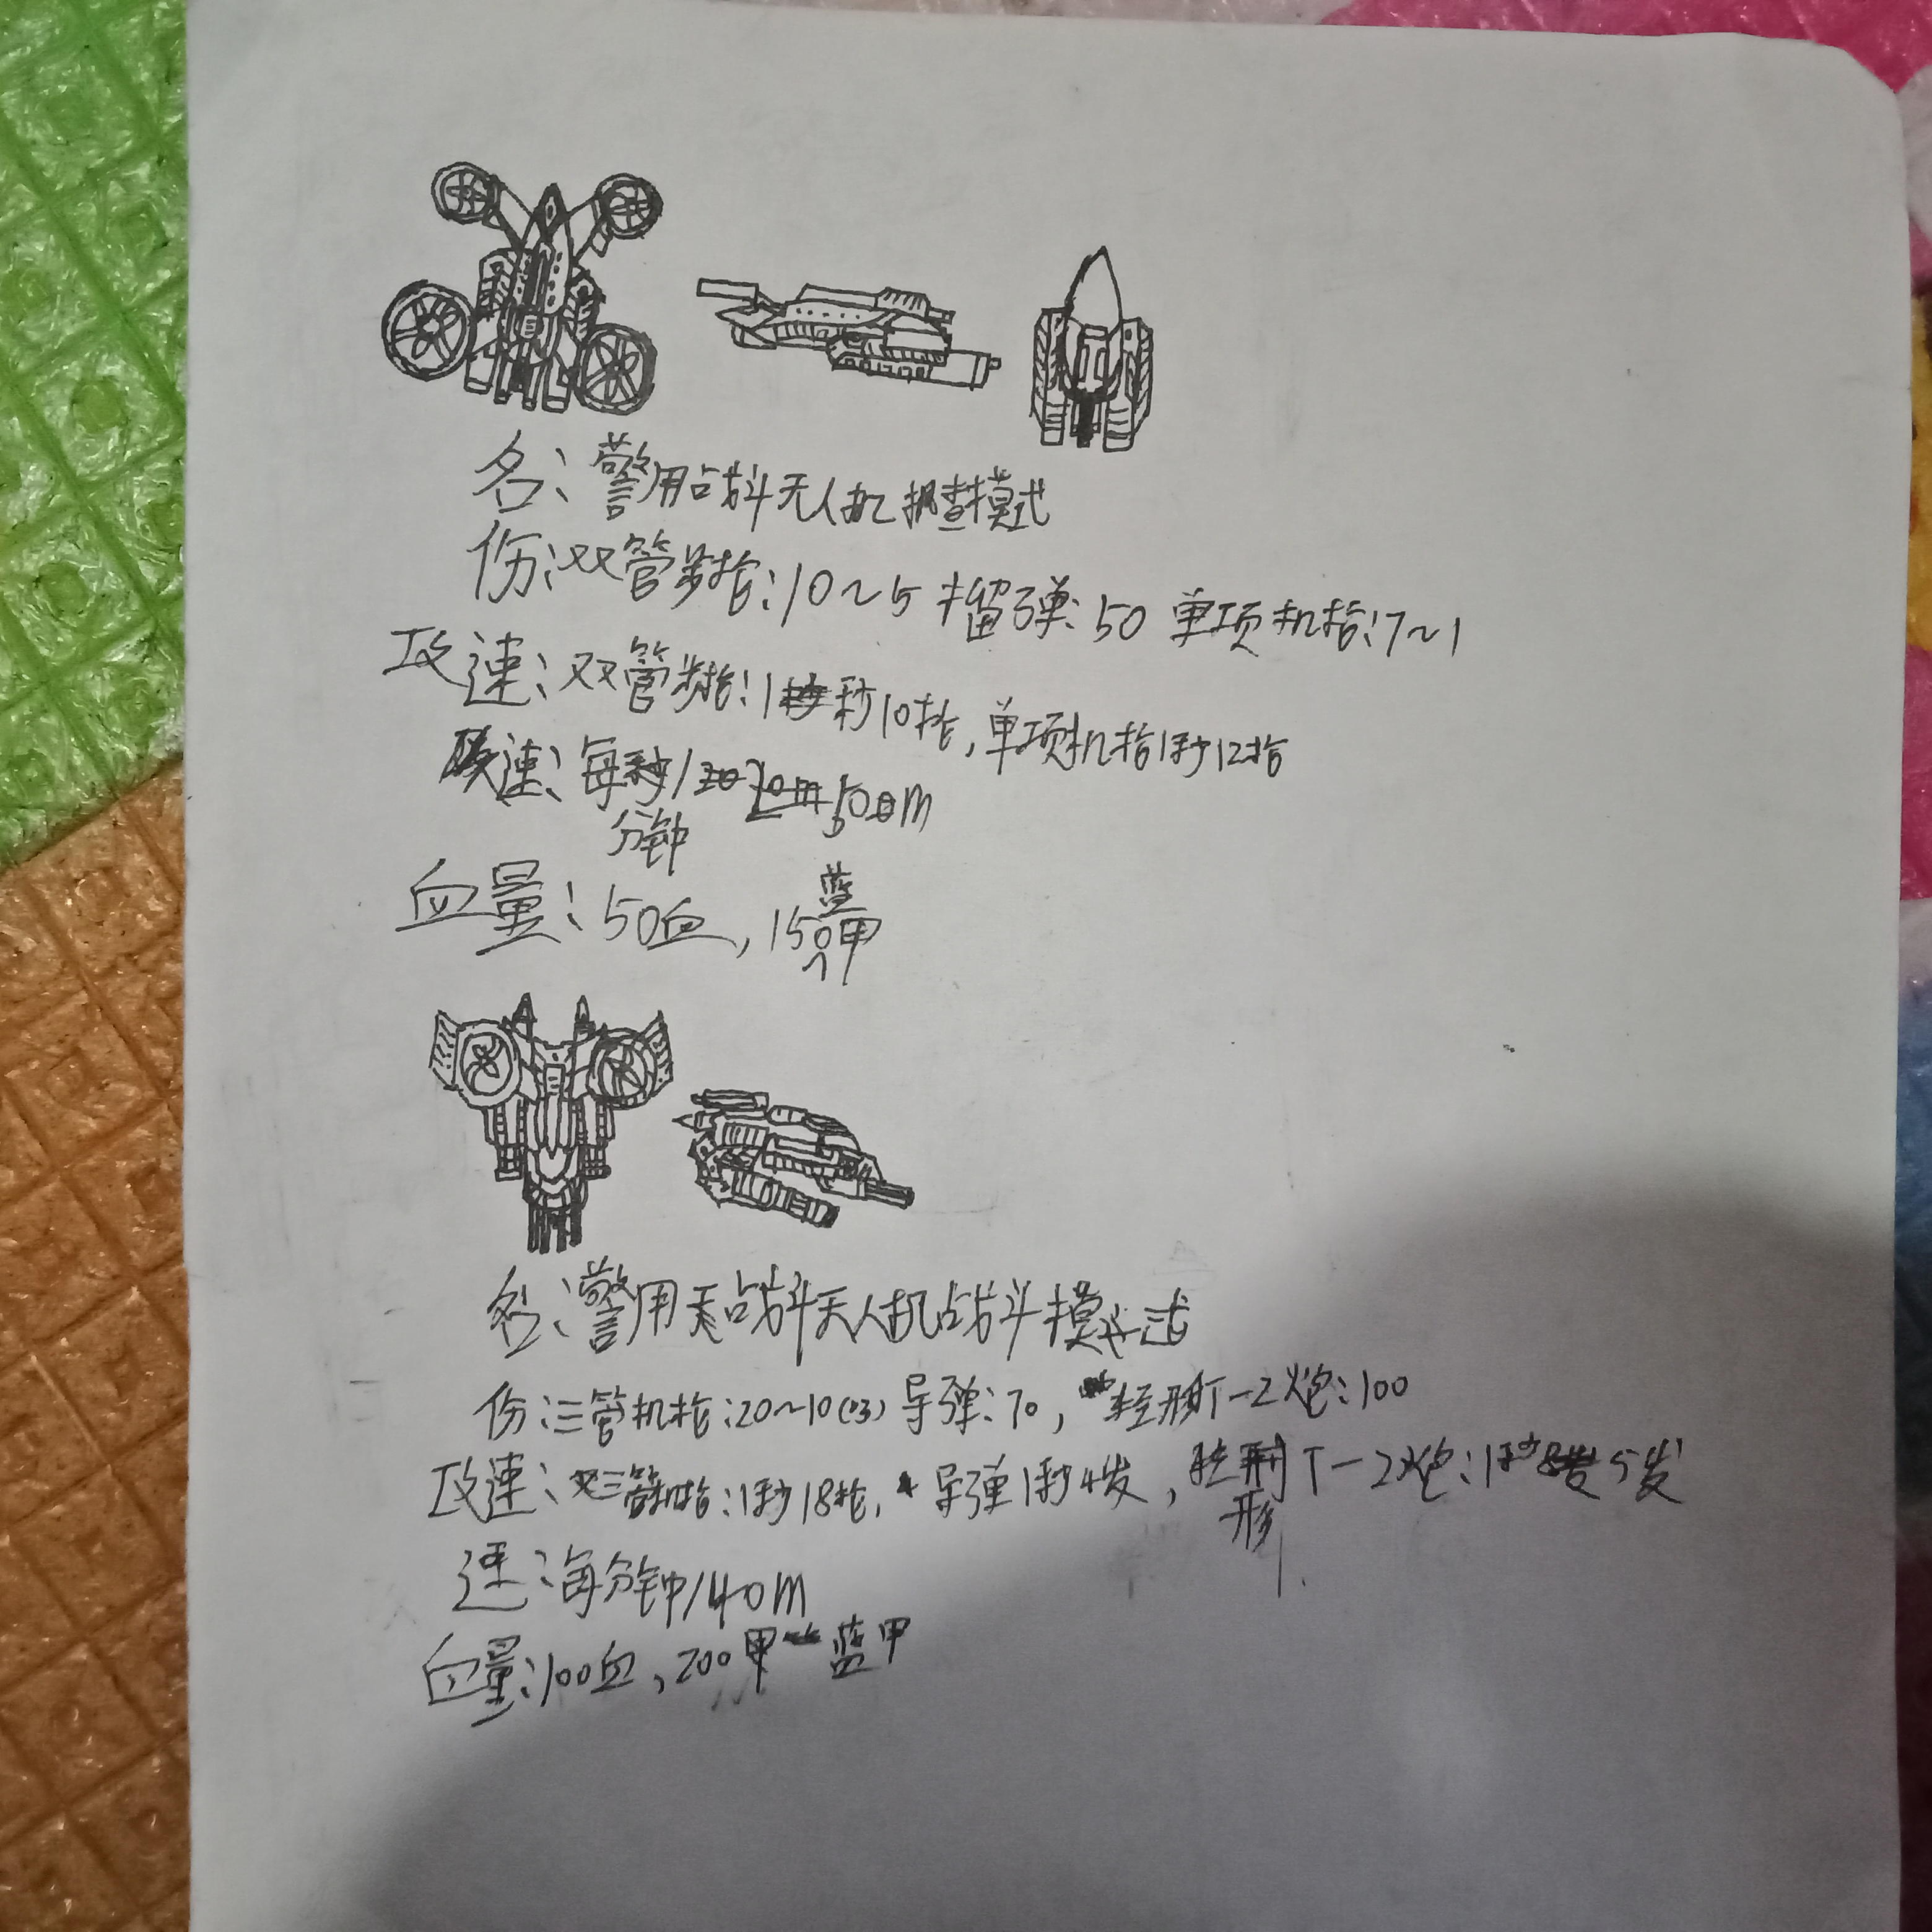 名:警用战斗无人机搜查模式
伤:双管步枪:10~5 榴弹:50 单项机枪:7~1
攻速:双管步枪:1秒10枪,单项机枪1秒12枪
速:每分钟/50m
血量:50血,150蓝甲
名:警用战斗无人机战斗模式
伤:三管机枪:20~10 导弹:70,轻形T-2炮:100
攻速:三管机枪:1秒18枪,导弹1秒4发,轻形T-2炮:1秒5发
速:每分钟/40m
血量:100血,200蓝甲